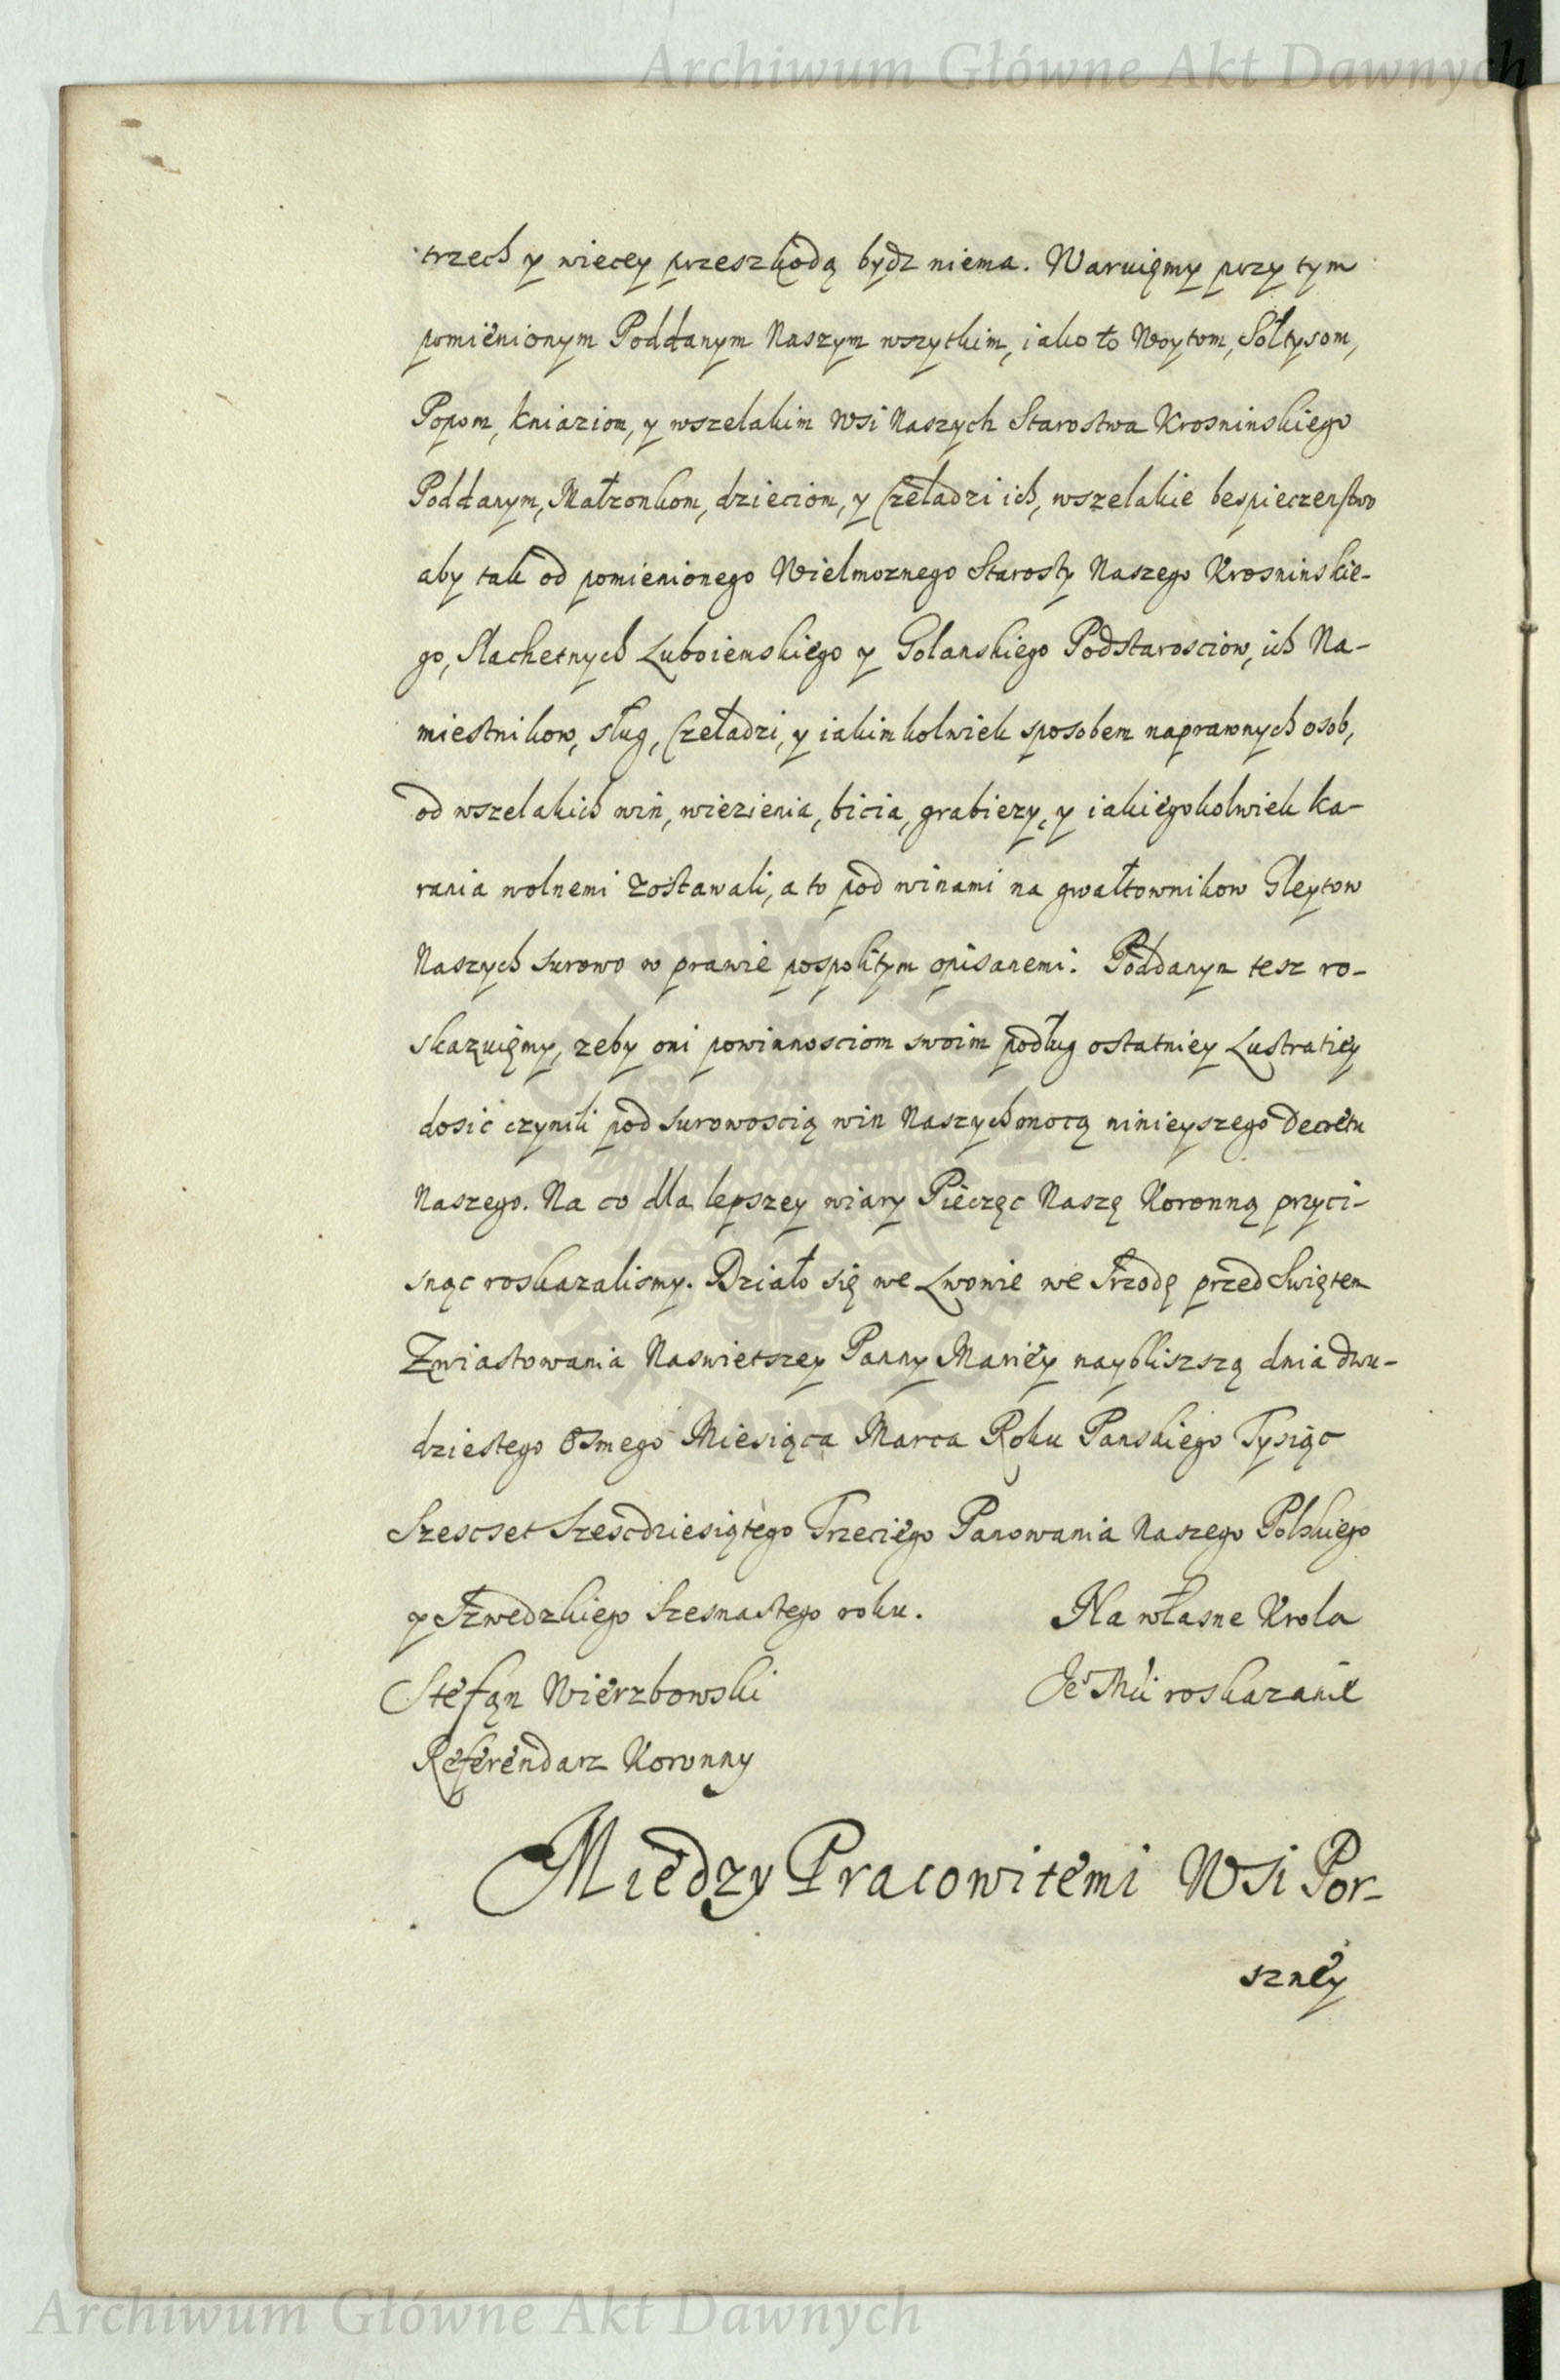 Archiwum Główne Akt Dawnych
trzech y wiecey przeszkodą bydz niema. Waruięmy przy tym
pomienionym Poddanym Naszym wszytkim, iako to Woytom, Sołtysom,
Popom, kniaziom, y wszelakim Wsi Naszych Starostwa Krosninskiego
Poddanym, Małzonkom, dzieciom, y Czeladzi ich, wszelakie bespieczenstwo
aby tak od pomienionego Wielmoznego Starosty Naszego Krosninskie-
go, Slachetnych Luboiemskiego y Golanskiego Podstarosciow, ich Na-
miestnikow, sług, Czeladzi, y iakimkolwiek sposobem naprawnych osob,
od wszelakich win, wiezienia, bicia, grabiezy, y iakiegokolwiek ka-
rania wolnemi zostawali, a to pod winami na gwałtownikow Gleytow
Naszych surowo w prawie pospolitym opisanemi. Poddanym tesz ro-
skazuięmy, zeby oni powinnosciom swoim podług ostatniey Lustratiey
dosić czynili pod surowoscią win Naszych mocą ninieyszego Decretu
Naszego. Na co dla lepszey wiary Pieczęc Naszę Koronną przyci-
snąc roskazalismy. Działo się we Lwowie we Srzodę przed Swiętem
Zwiastowania Naswietszey Panny Mariey naybliszszą dnia dwu-
dziestego osmego Miesiąca Marca Roku Panskiego Tysiąc
Szescset Szescdziesiątego Trzeciego Panowania Naszego Polskiego
y Szwedzkiego Szesnastego roku. Na własne Krola
Stefąn Wierzbowski Je° Mći roskazanie
Referendarz Koronny
Miedzy Pracowitemi Wsi Por-
szney
Archiwum Główne Akt Dawnych